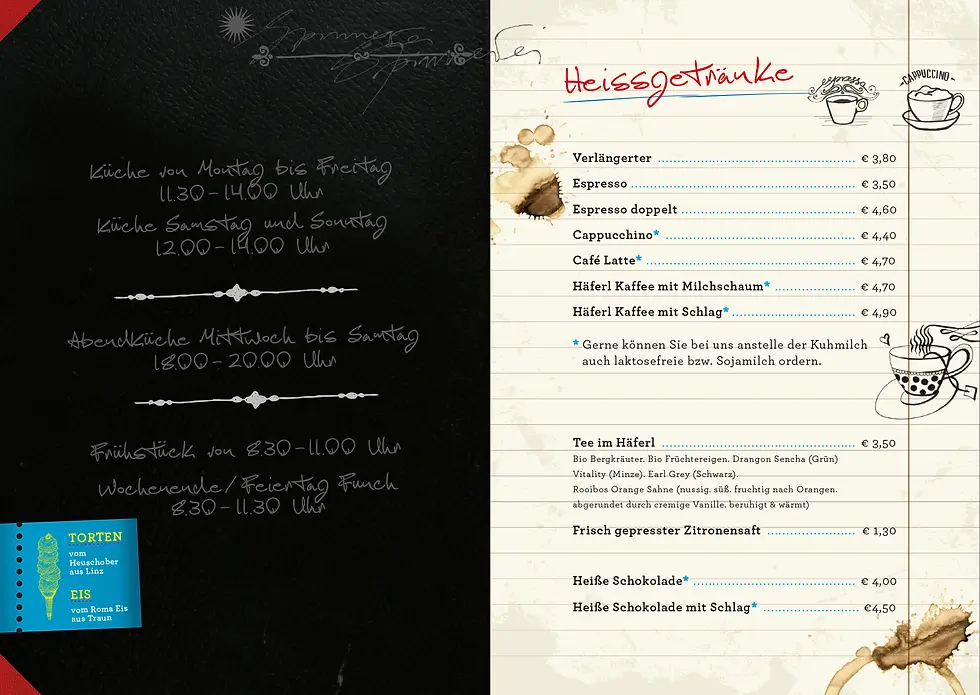 Küche von Montag bis Freitag
11.30-14.00 Uhr
Küche Samstag und Sonntag
12.00-14.00 Uhr
Abendküche Mittwoch bis Samtag
18.00-20.00 Uhr
Frühstück von 8.30-11.00 Uhr
Wochenende/Feiertag Funch
8.30-11.30 Uhr
TORTEN
vom
Heuschober
aus Linz
EIS
vom Roma Eis
aus Traun
Heissgetränke
espresso
CAPPUCCINO
Verlängerter € 3,80
Espresso € 3,50
Espresso doppelt € 4,60
Cappucchino* € 4,40
Café Latte* € 4,70
Häferl Kaffee mit Milchschaum* € 4,70
Häferl Kaffee mit Schlag* € 4,90
* Gerne können Sie bei uns anstelle der Kuhmilch
auch laktosefreie bzw. Sojamilch ordern.
Tee im Häferl € 3,50
Bio Bergkräuter. Bio Früchtereigen. Drangon Sencha (Grün)
Vitality (Minze). Earl Grey (Schwarz).
Rooibos Orange Sahne (nussig. süß. fruchtig nach Orangen.
abgerundet durch cremige Vanille. beruhigt & wärmt)
Frisch gepresster Zitronensaft € 1,30
Heiße Schokolade* € 4,00
Heiße Schokolade mit Schlag* €4,50